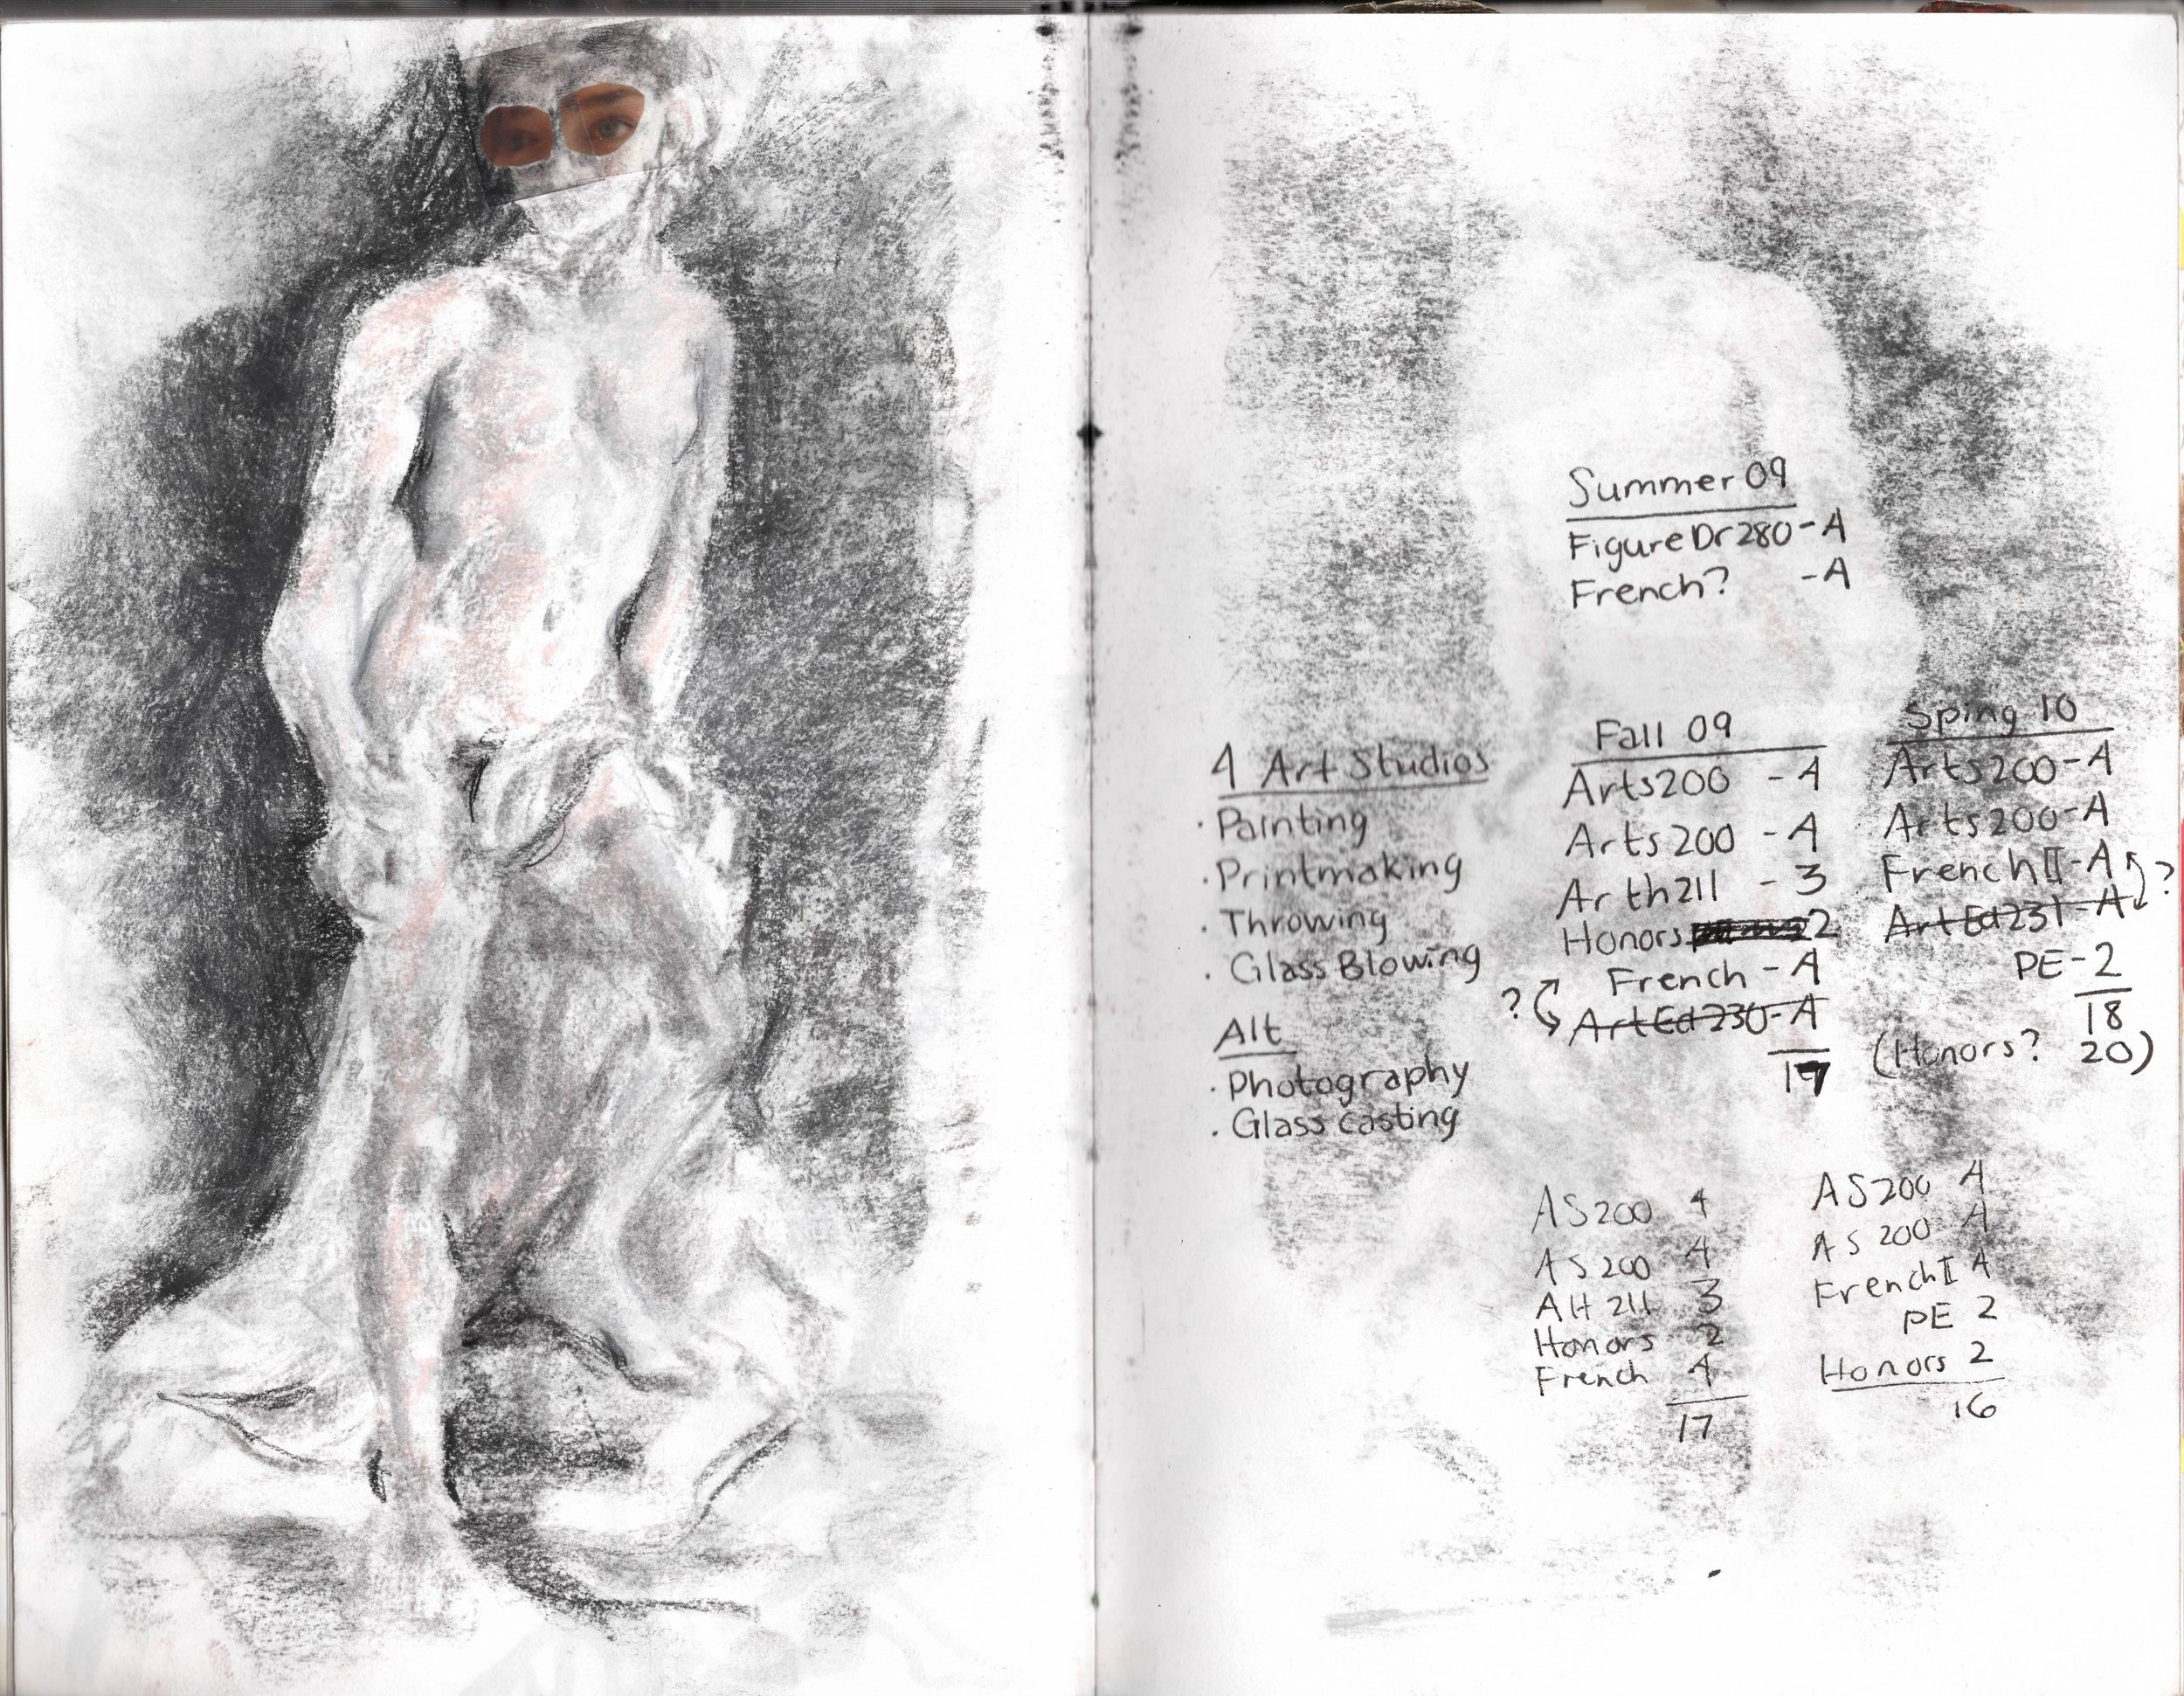 Summer 09
Figure Dr 280 - 4
French? - 4
4 Art Studios
· Painting
· Printmaking
· Throwing
· Glass Blowing
Alt
· Photography
· Glass casting
Fall 09
Arts 200 - 4
Arts 200 - 4
Arth 211 - 3
Honors 2
French - 4
? ArtEd 230 - 4
17
Sping 10
Arts 200 - 4
Arts 200 - 4
French II - 4 ?
ArtEd 231 - 4
PE - 2
18
(Honors? 20)
AS 200 4
AS 200 4
AH 211 3
Honors 2
French 4
17
AS 200 4
AS 200 4
French II 4
PE 2
Honors 2
16